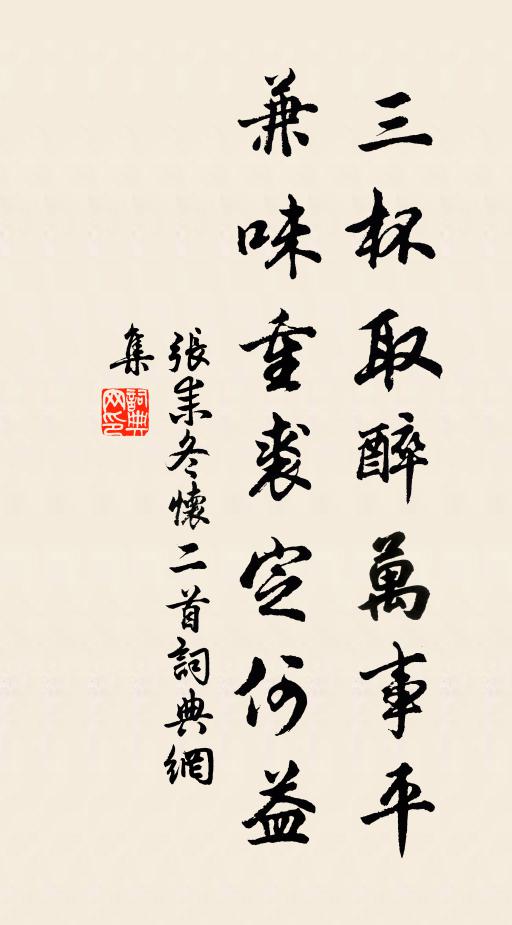 三杯取醉萬事平
兼味重裘定何益
張耒冬懷二首詞典網
集
詞典
网印